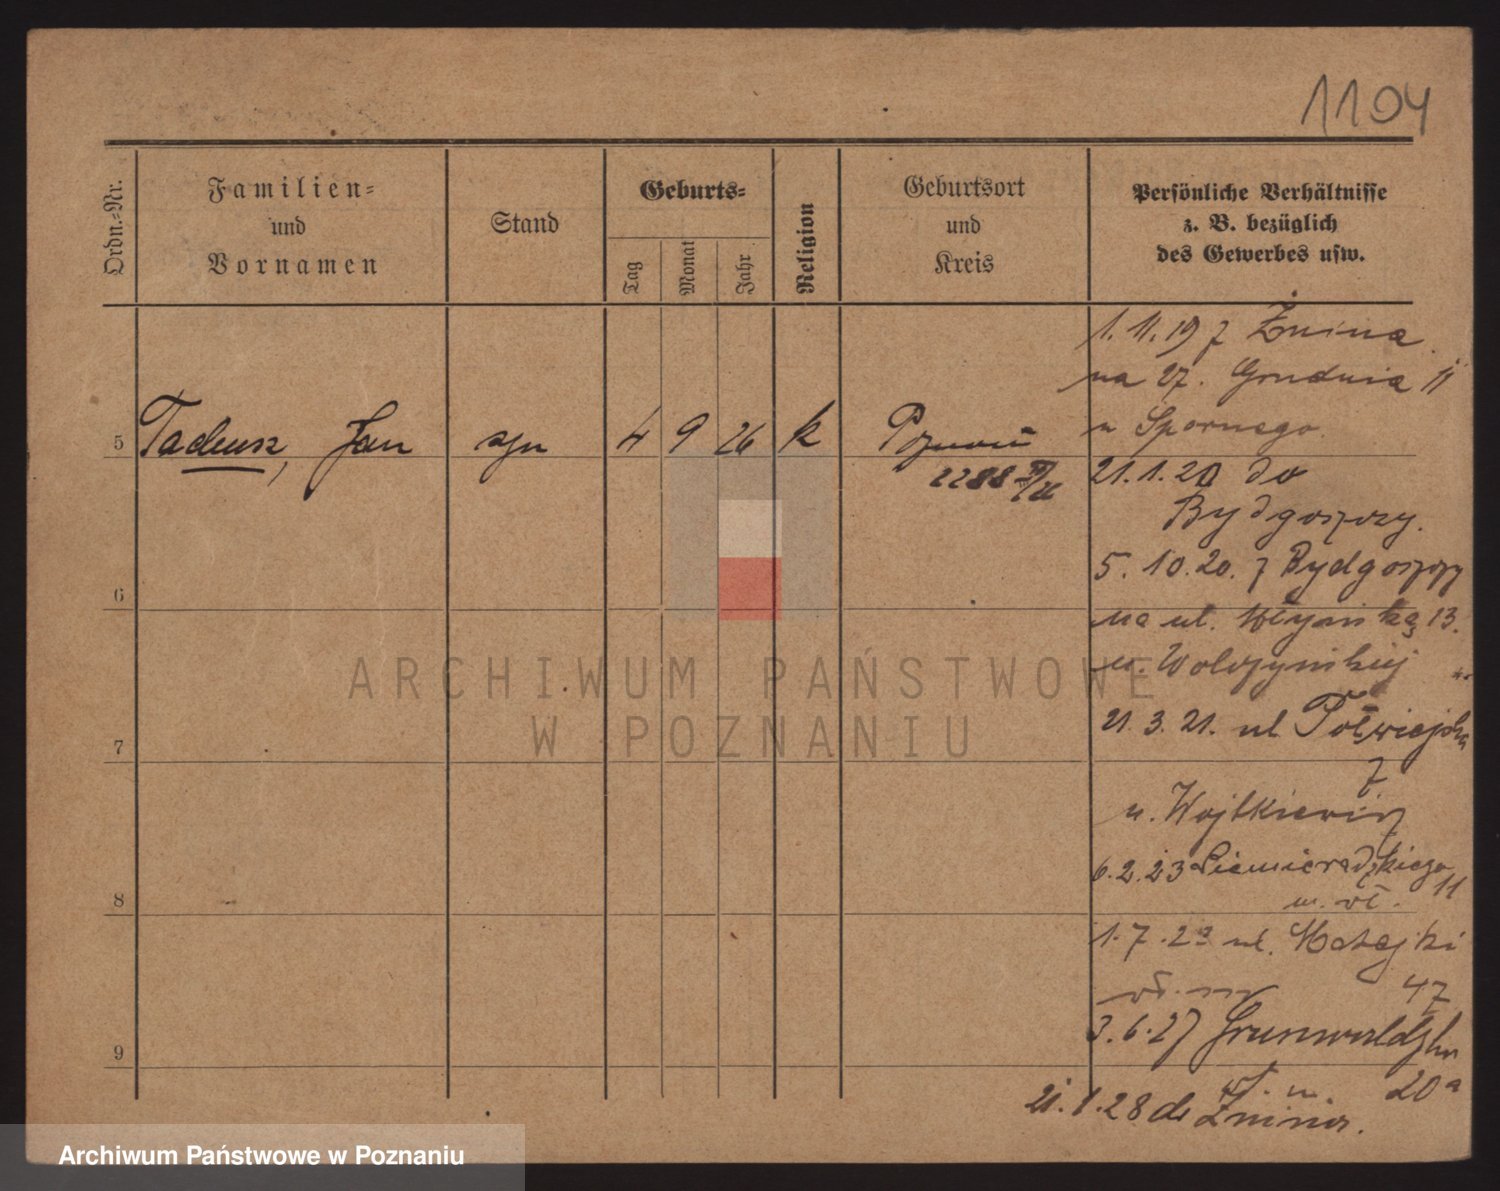 1104
Ordn.=Nr.
Familien=
und
Vornamen
Stand
Geburts=
Tag
Monat
Jahr
Religion
Geburtsort
und
Kreis
Persönliche Verhältnisse
z. B. bezüglich
des Gewerbes usw.
1. 11. 19 z Żnina
na 27. Grudnia 11
u Spornego.
5 Tadeusz, Jan syn 4 9 26 k Poznań
2288
21. 1. 20 do
Bydgoszczy.
5. 10. 20. z Bydgoszczy
6
na ul. 13.
u. Wolszyńskiej
21. 3. 21. ul Półwiejska
7
7
u. Wojtkiewicz
6. 2. 23 Siemiradzkiego
11
m. wł.
8
1. 7. 23 ul. Matejki
47
wł.
3. 6. 27 Grunwaldzka
9
20a
wł. m.
21. 1. 28 do Żnina.
ARCHIWUM PAŃSTWOWE
W POZNANIU
Archiwum Państwowe w Poznaniu